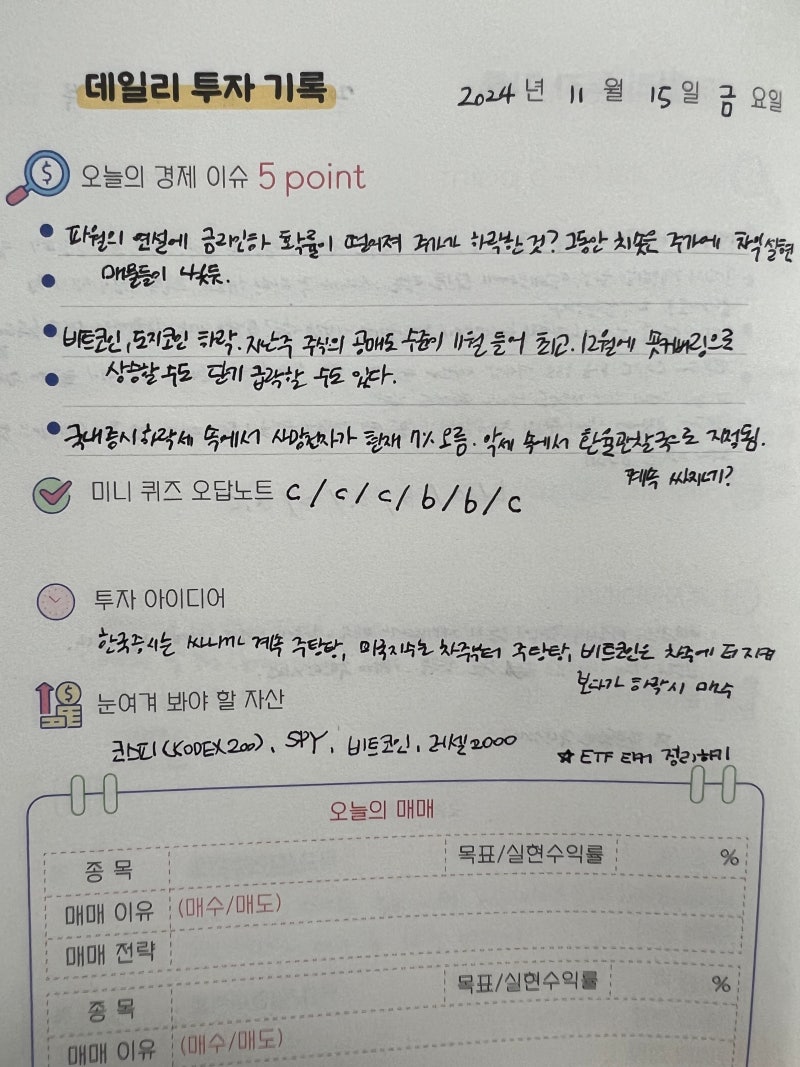 데일리 투자 기록
2024 년 11 월 15 일 금 요일
오늘의 경제 이슈 5 point
파월의 연설에 금리인하 확률이 떨어져 주가가 하락한 것? 그동안 치솟은 주가에 차익실현
매물들이 나왔듯.
비트코인, 도지코인 하락. 지난주 주식의 공매도 수준이 11월 들어 최고. 12월에 숏커버링으로
상승할 수도 단기 급락할 수도 있다.
국내증시 하락세 속에서 사양전자가 현재 7% 오름. 약세 속에서 환율관찰국으로 지정됨.
계속 싸지네?
미니 퀴즈 오답노트 c / c / c / b / b / c
투자 아이디어
한국증시는 싸니까 계속 주탕탕, 미국지수는 차주부터 주탕탕, 비트코인은 차주에 더 지켜
보다가 하락시 매수
눈여겨 봐야 할 자산
코스피(KODEX200), SPY, 비트코인, 러셀2000
☆ ETF 티커 정리하기
오늘의 매매
종 목 목표/실현수익률 %
매매 이유 (매수/매도)
매매 전략
종 목 목표/실현수익률 %
매매 이유 (매수/매도)